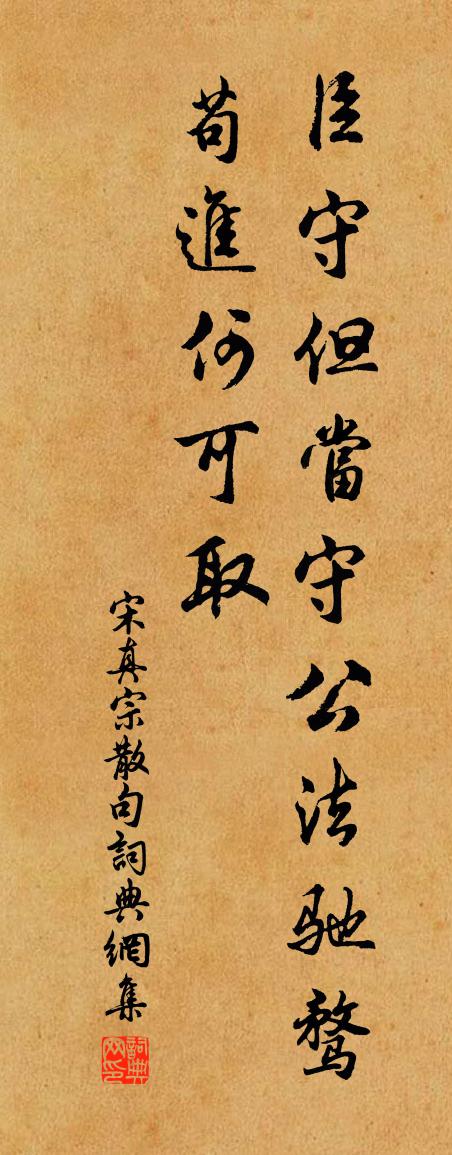 臣守但當守公法馳驁
苟進何可取
宋真宗散句詞典網集
詞典網印